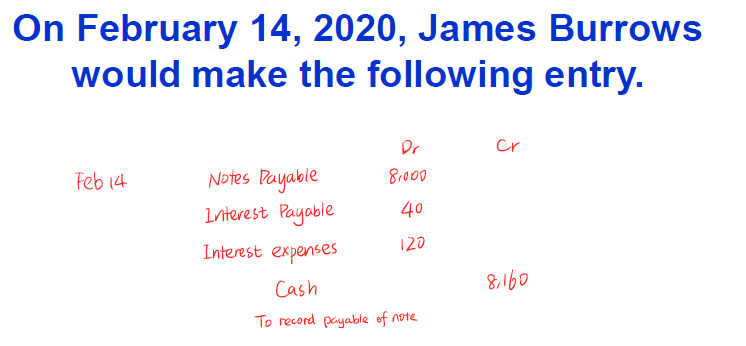 On February 14, 2020, James Burrows
would make the following entry.
Dr Cr
Feb 14 Notes Payable 8,000
Interest Payable 40
Interest expenses 120
Cash 8,160
To record payable of note